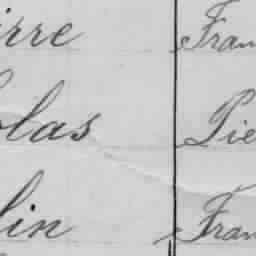 ierre Fran
olas Pie
lin Fran